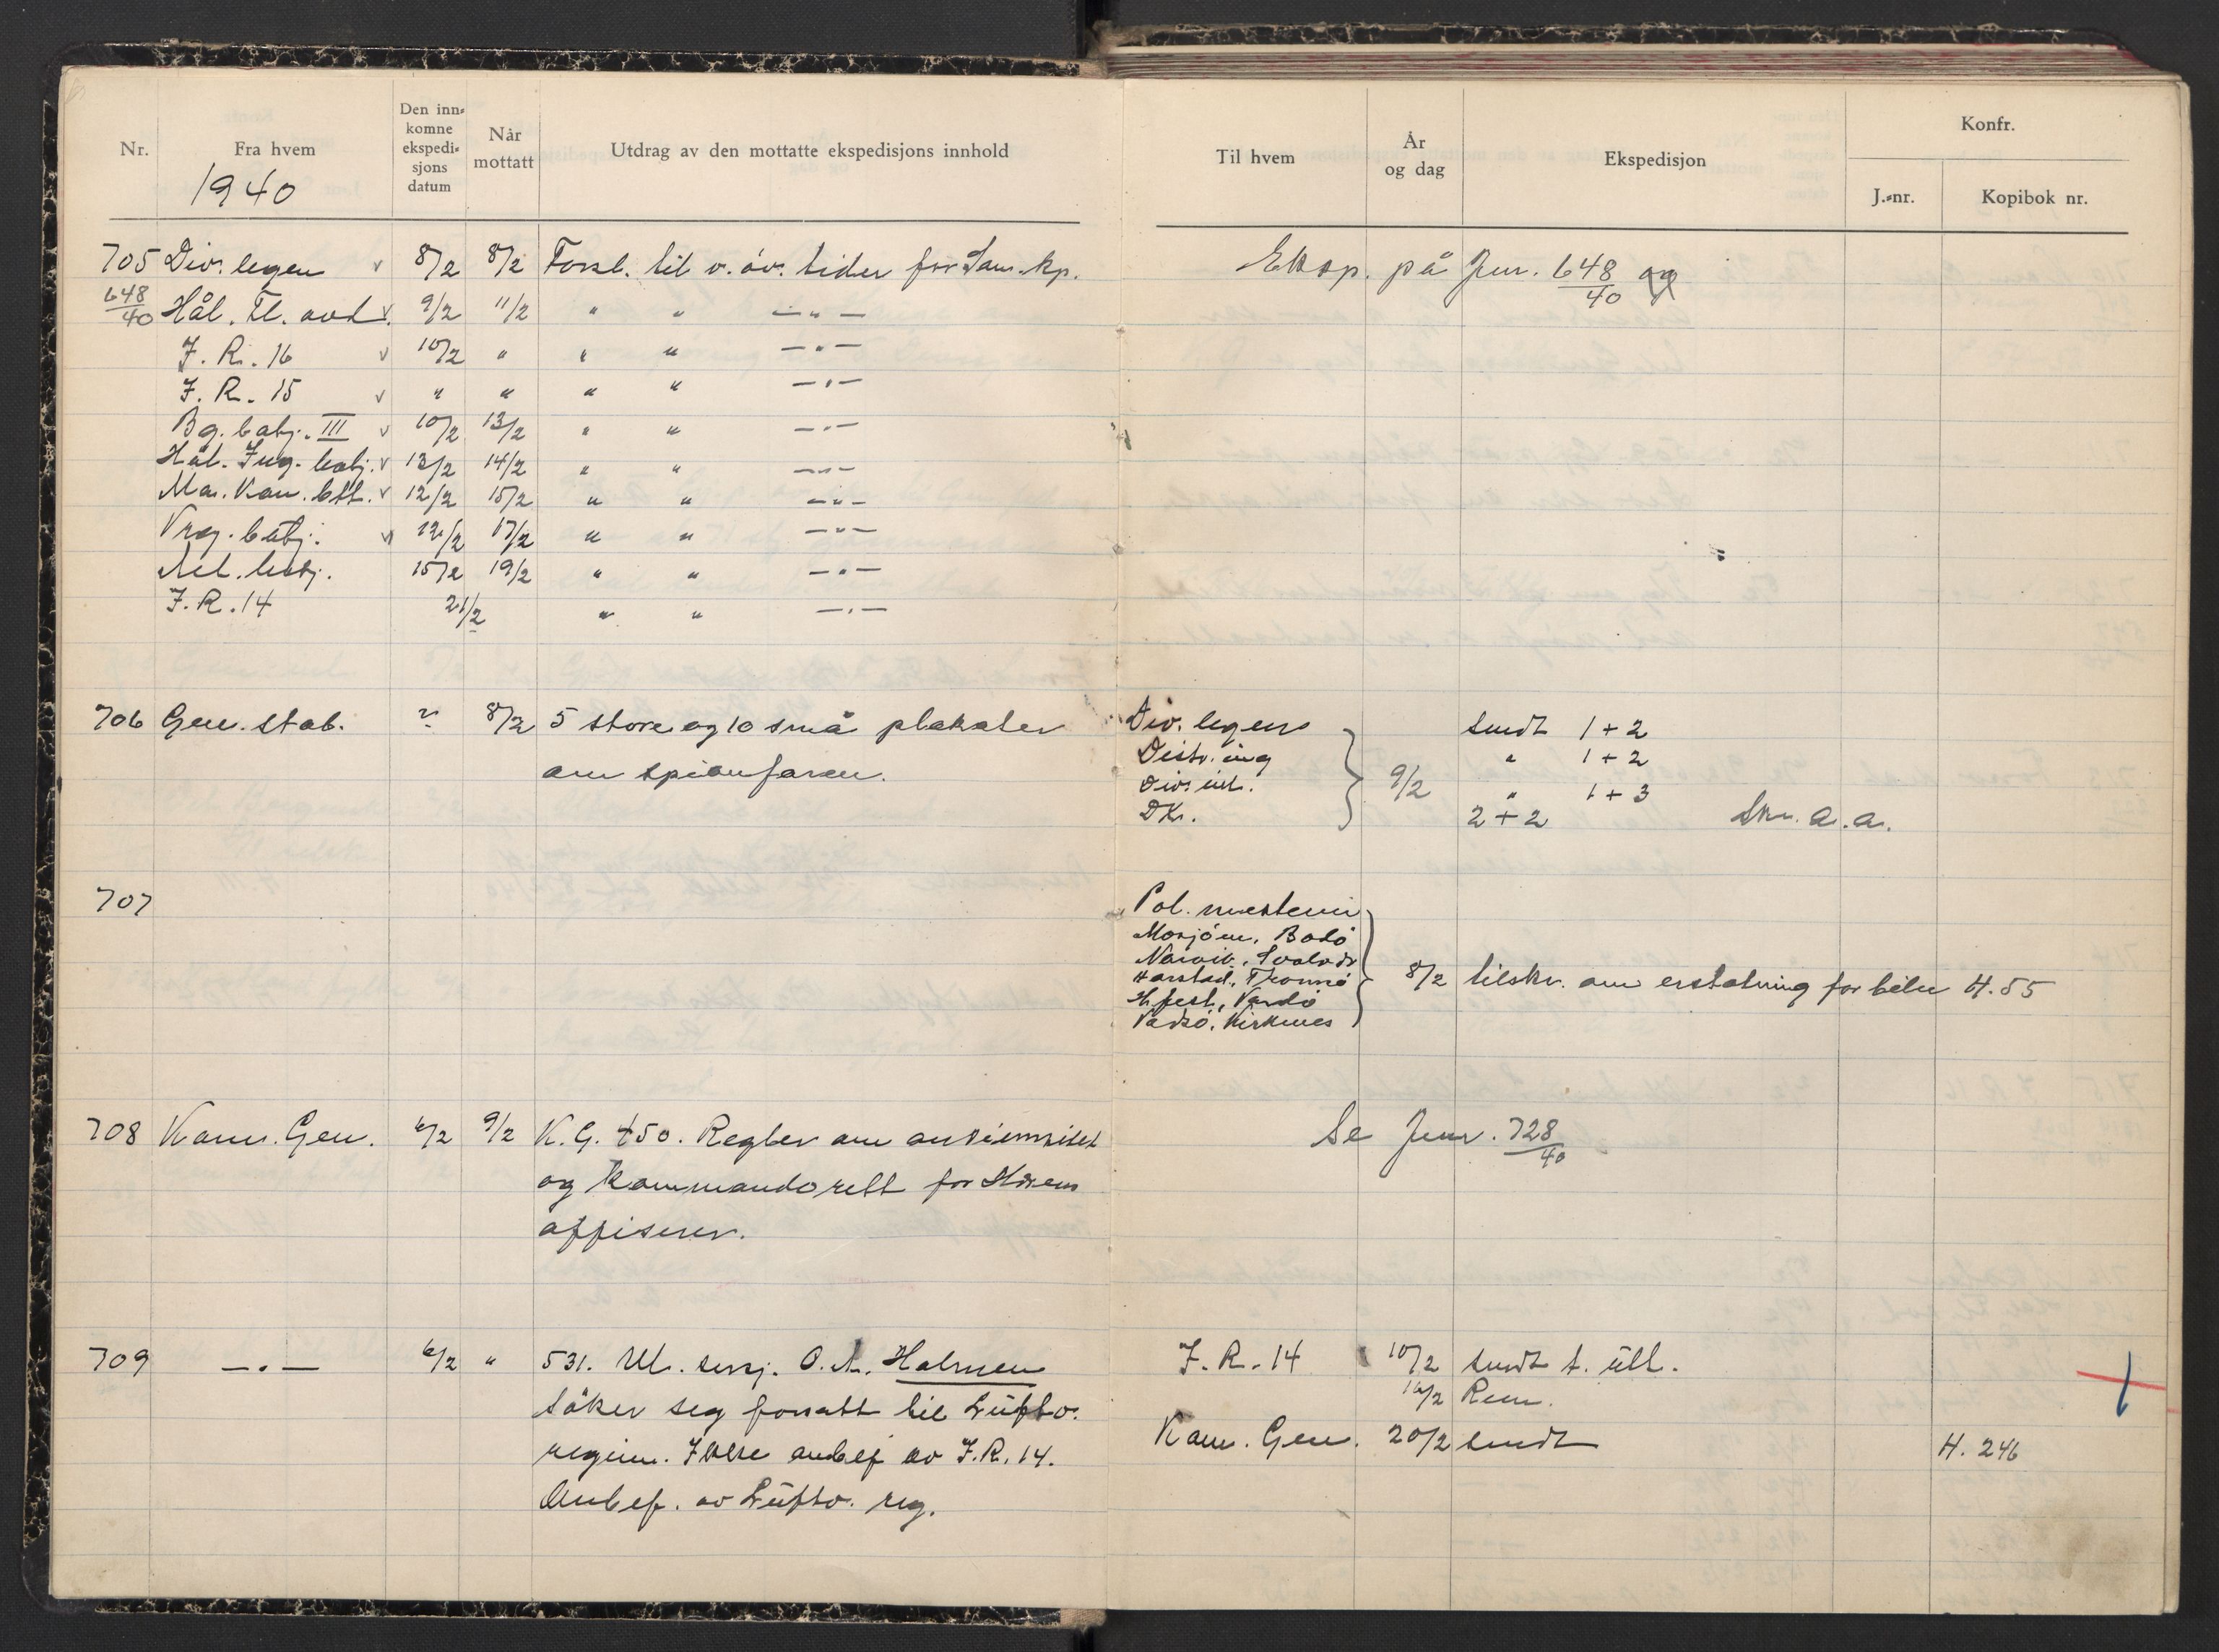 Nr.
Fra hvem
1940
Den inn-
komne
ekspedi-
sjons
datum
Når
mottatt
Utdrag av den mottatte ekspedisjons innhold
705 Div. legen v 8/2 8/2 Forsl. til v. öv. tider for San. kp.
648/40 Hål. Fl. avd. v 9/2 11/2 " " —"—
I. R. 16 v 10/2 " " " —"—
I. R. 15 v " " " " —"—
Bg. batj. III v 10/2 13/2 " " —"—
Hål. Ing. batj. v 13/2 14/2 " " —"—
Ma. Kan. btt. v 12/2 15/2 " " —"—
Vrg. batj. v 12/2 17/2 " " —"—
Alt. batj. 15/2 19/2 " " —"—
I. R. 14 21/2 " " —"—
706 Gen. stab. ? 8/2 5 store og 10 små plakater
om spionfaren.
707
708 Kom. Gen. 6/2 9/2 K. G. 450. Regler om ansiennitet
og kommandorett for Hærens
offiserer.
709 —"— 6/2 " 531. Ul. serj. O. A. Holmen
söker seg forsatt til Luftv.
regim. Ikke anbef av I. R. 14.
Anbef. av Luftv. reg.
Til hvem
År
og dag
Ekspedisjon
Konfr.
J.-nr.
Kopibok nr.
Eksp. på Jnr. 648/40
Div. legen sendt 1 + 2
Distr. ing " 1 + 2
Div. int. 9/2 " 1 + 3
DK. 2 + 2 Skr. a. a.
Pol. mesteren i
Mosjöen, Bodö
Narvik, Svolvær
Harstad, Tromsö
H.fest, Vardö
Vadsö, Kirkenes
8/2 tilskr. om erstatning for biler H. 55
Se Jnr. 728/40
I. R. 14 10/2 sendt t. utt.
16/2 Rem.
Kom. Gen. 20/2 sendt H. 246